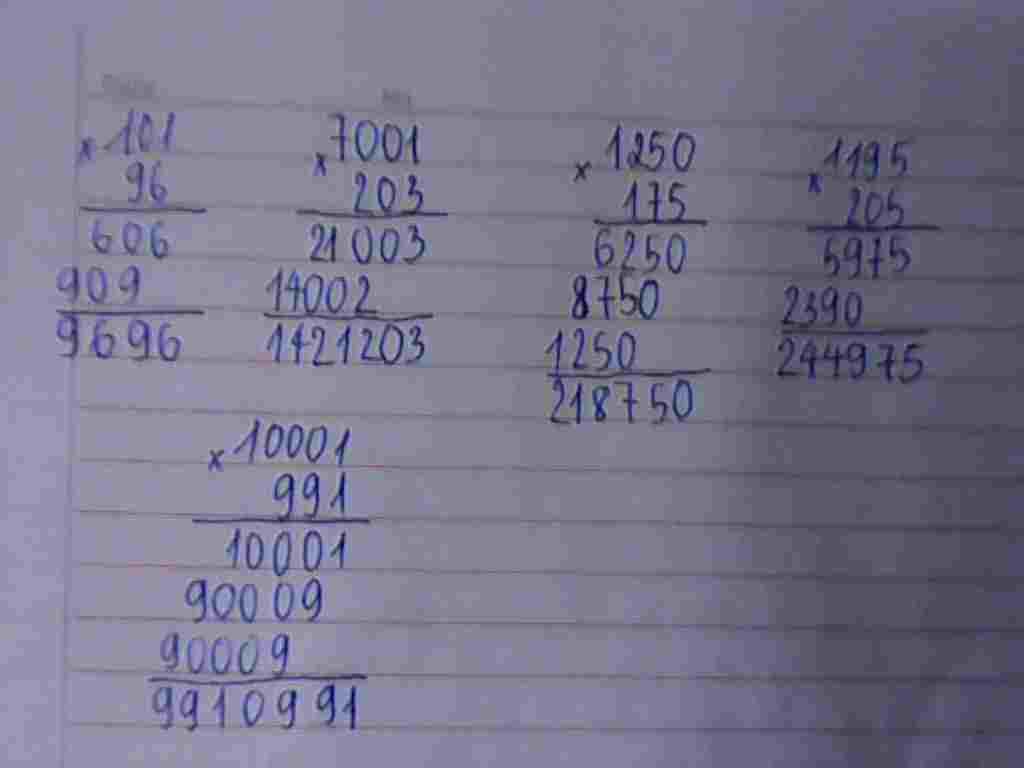 x 101
96
606
909
9696
x 7001
203
21003
14002
1421203
x 1250
175
6250
8750
1250
218750
x 1195
205
5975
2390
244975
x 10001
991
10001
90009
90009
9910991